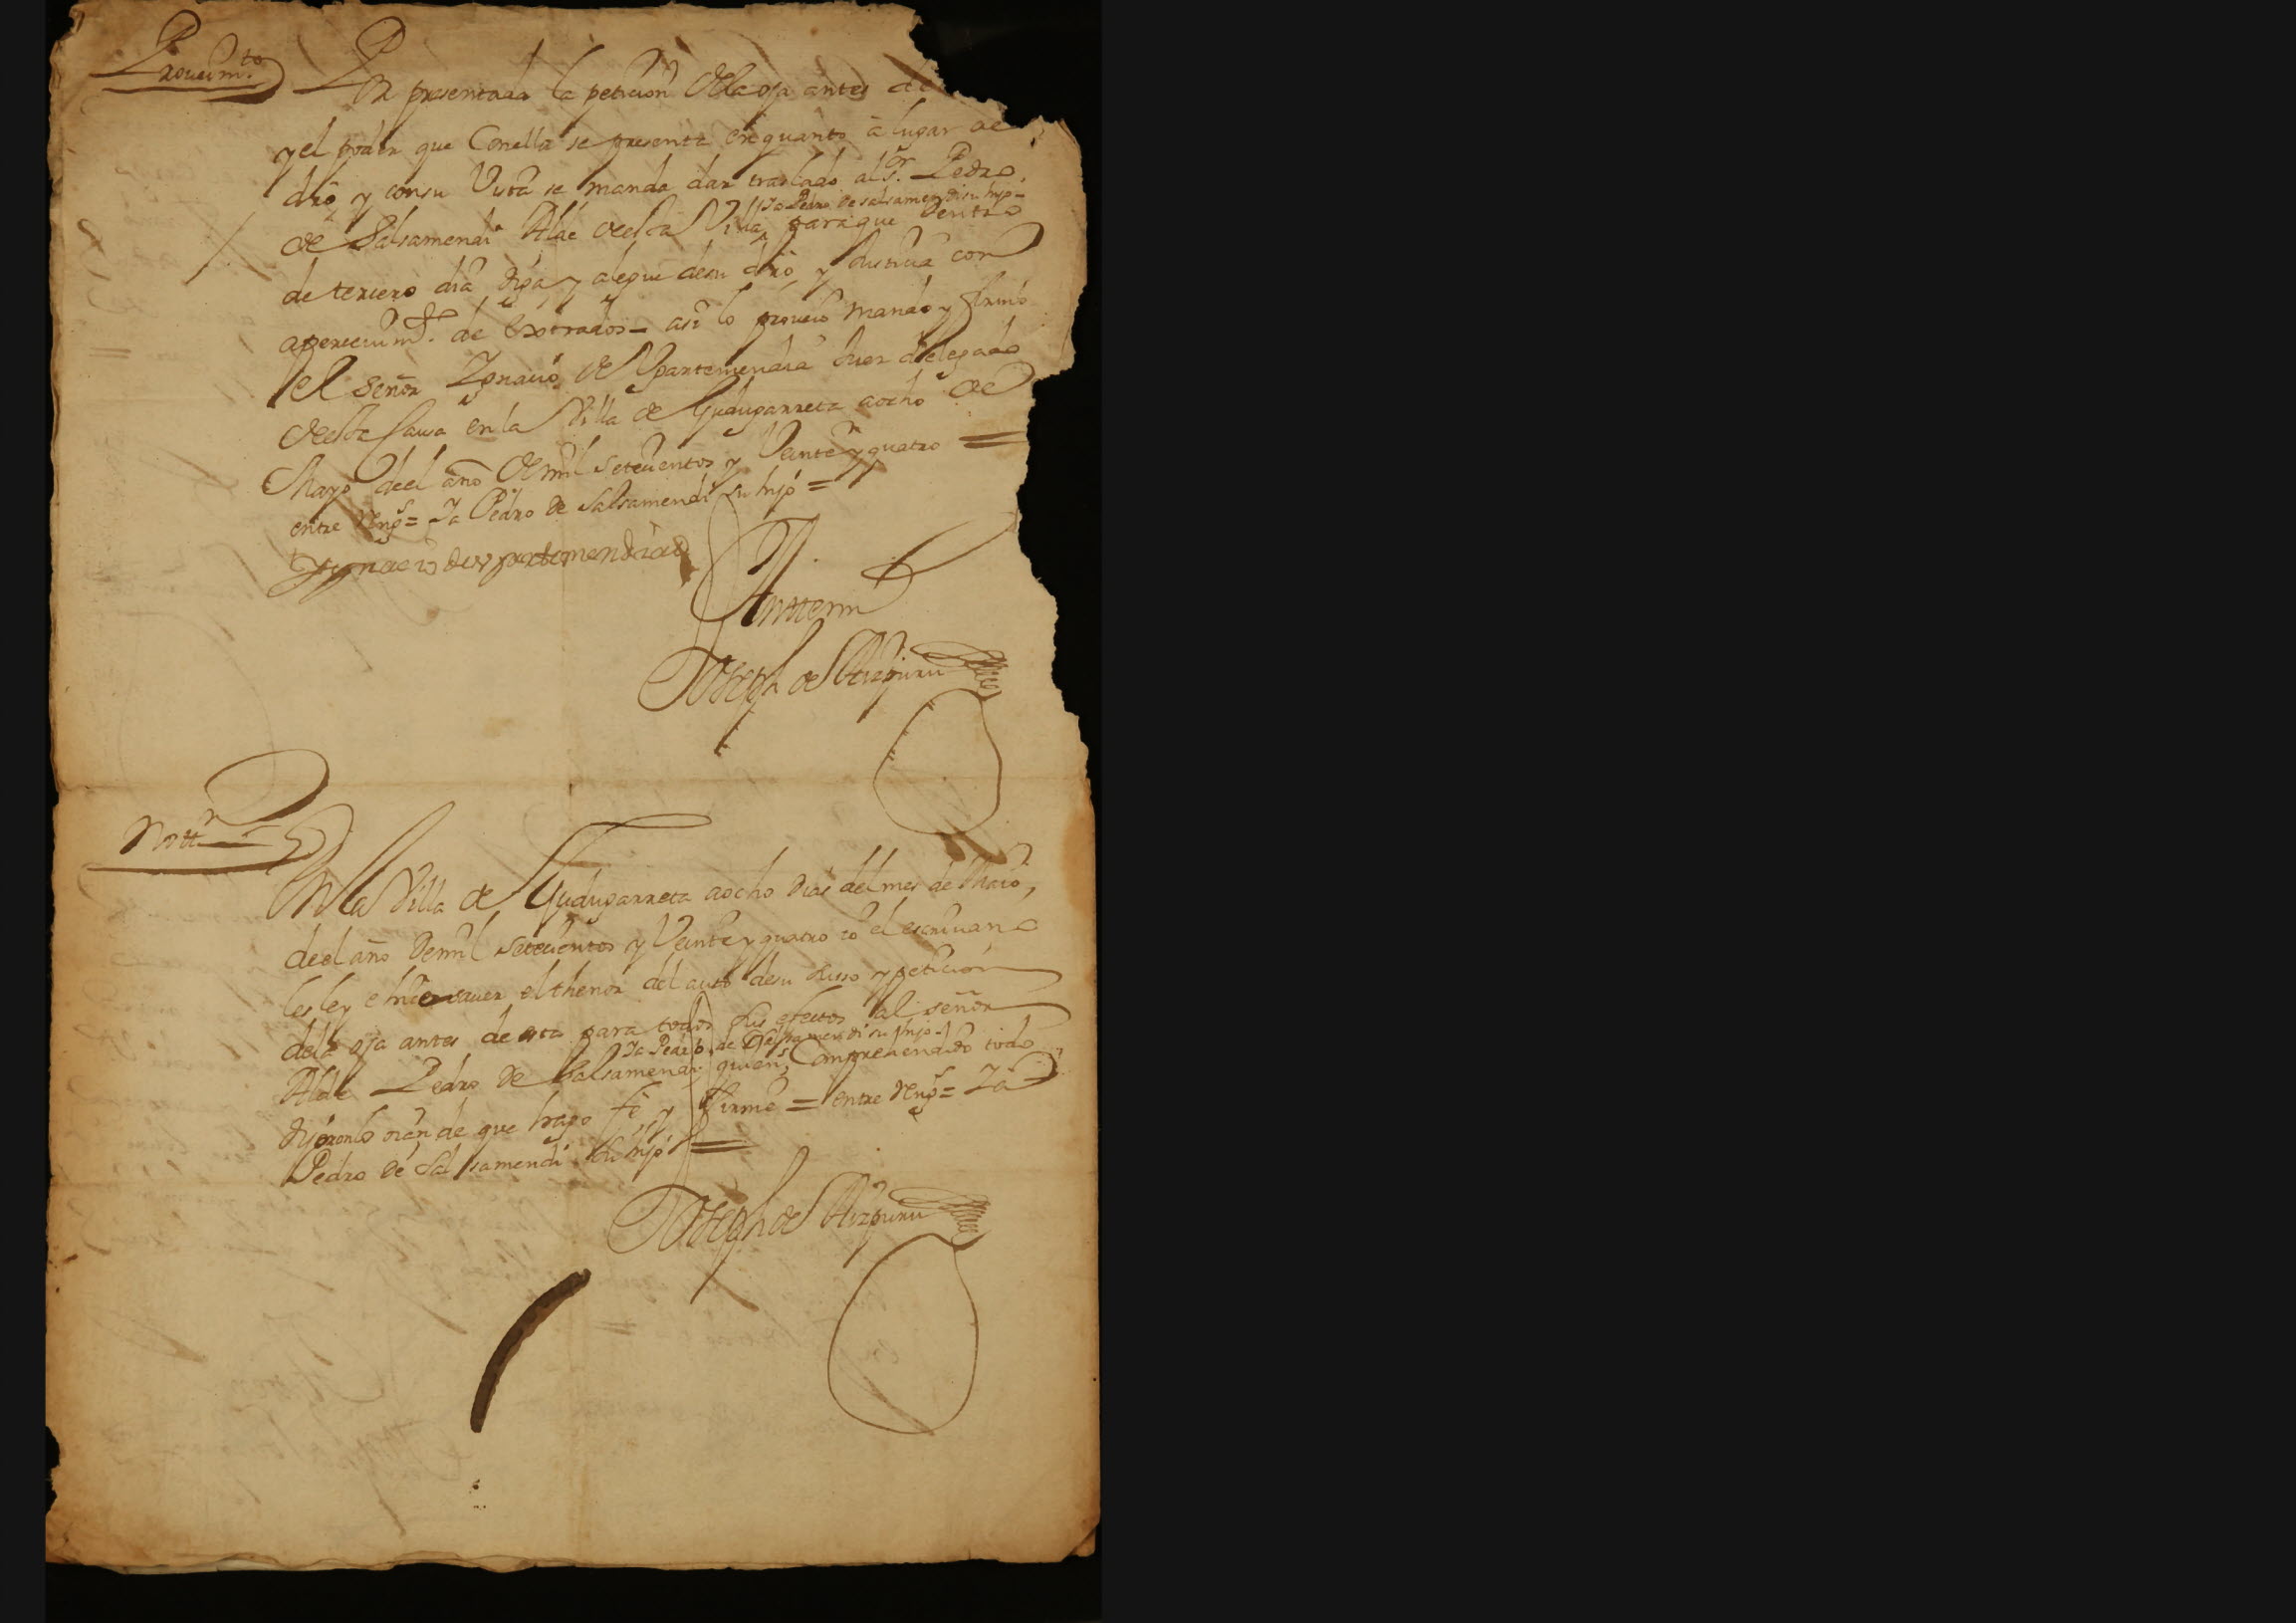 Proveim.to
Por presentada la peticion de la oja antes de
y el poder que Conella se presenta en quanto à lugar de
dro y con su Vista se manda dar traslado al s.or Pedro
Ja Pedro de salsamendi su hijo
de Salsamendi Alde desta Villa para que dentro
de tercero dia diga y alegue de su dro y Justicia con
aperceuim.to de Extrados – asi lo proueio mando y firmo
el señor Ignacio de Ypartemendia Juez delegado
desta causa en la Villa de Gudugarreta a ocho de
Mayo de el año de mil setecientos y Veinte y quatro =
entre Rengs = Ja Pedro de Salsamendi su hijo =
Ygnacio de ypartemendia
Antemi
Joseph de Aizpuru
Nottn
En la Villa de Gudugarreta a ocho dias del mes de Maio,
de el año de mil setecientos y Veinte y quatro io el escriuano
les ley e hice sauer el thenor del auto de su Usso y peticion
de la oja antes de esta para todos sus efectos al señor
Ja Pedro de Salsamendi su hijo
Alde Pedro de Salsamendi quiens Comprehendido todo
dijeronlo oian de que hago fe, y firme = entre Rengs = Ja
Pedro de Salsamendi su hijo =
Joseph de Aizpuru